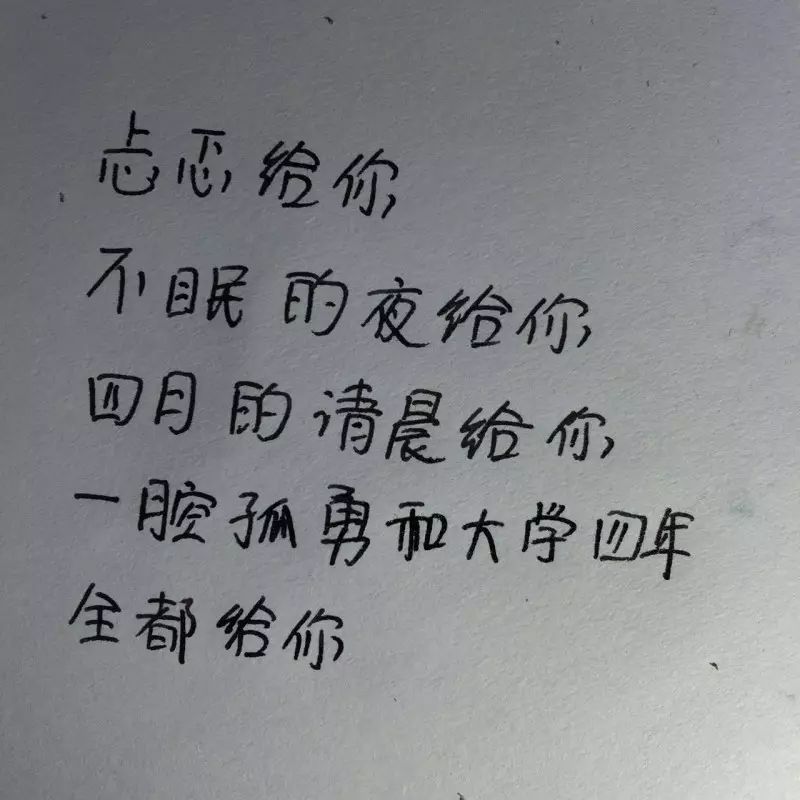 忐忑给你
不眠的夜给你
四月的清晨给你
一腔孤勇和大学四年
全都给你